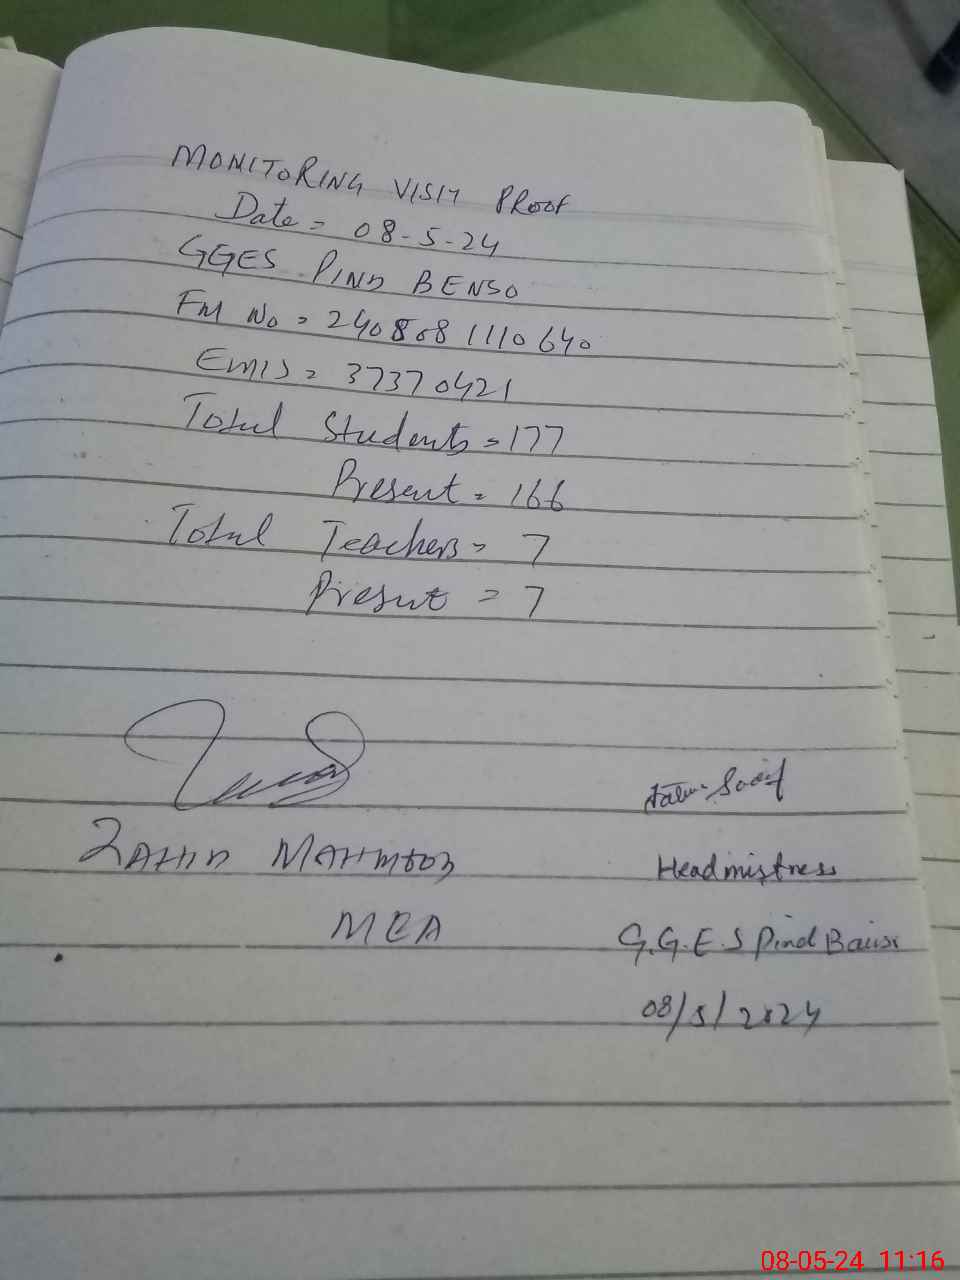 MONITORING VISIT PROOF
Date = 08-5-24
GGES PIND BENSO
FM No = 2408081110640
EMIS = 37370421
Total Students = 177
Present = 166
Total Teachers = 7
Present = 7
ZAHID MAHMOOD
MEA
Headmistress
G.G.E.S Pind Bainso
08/5/2024
08-05-24 11:16